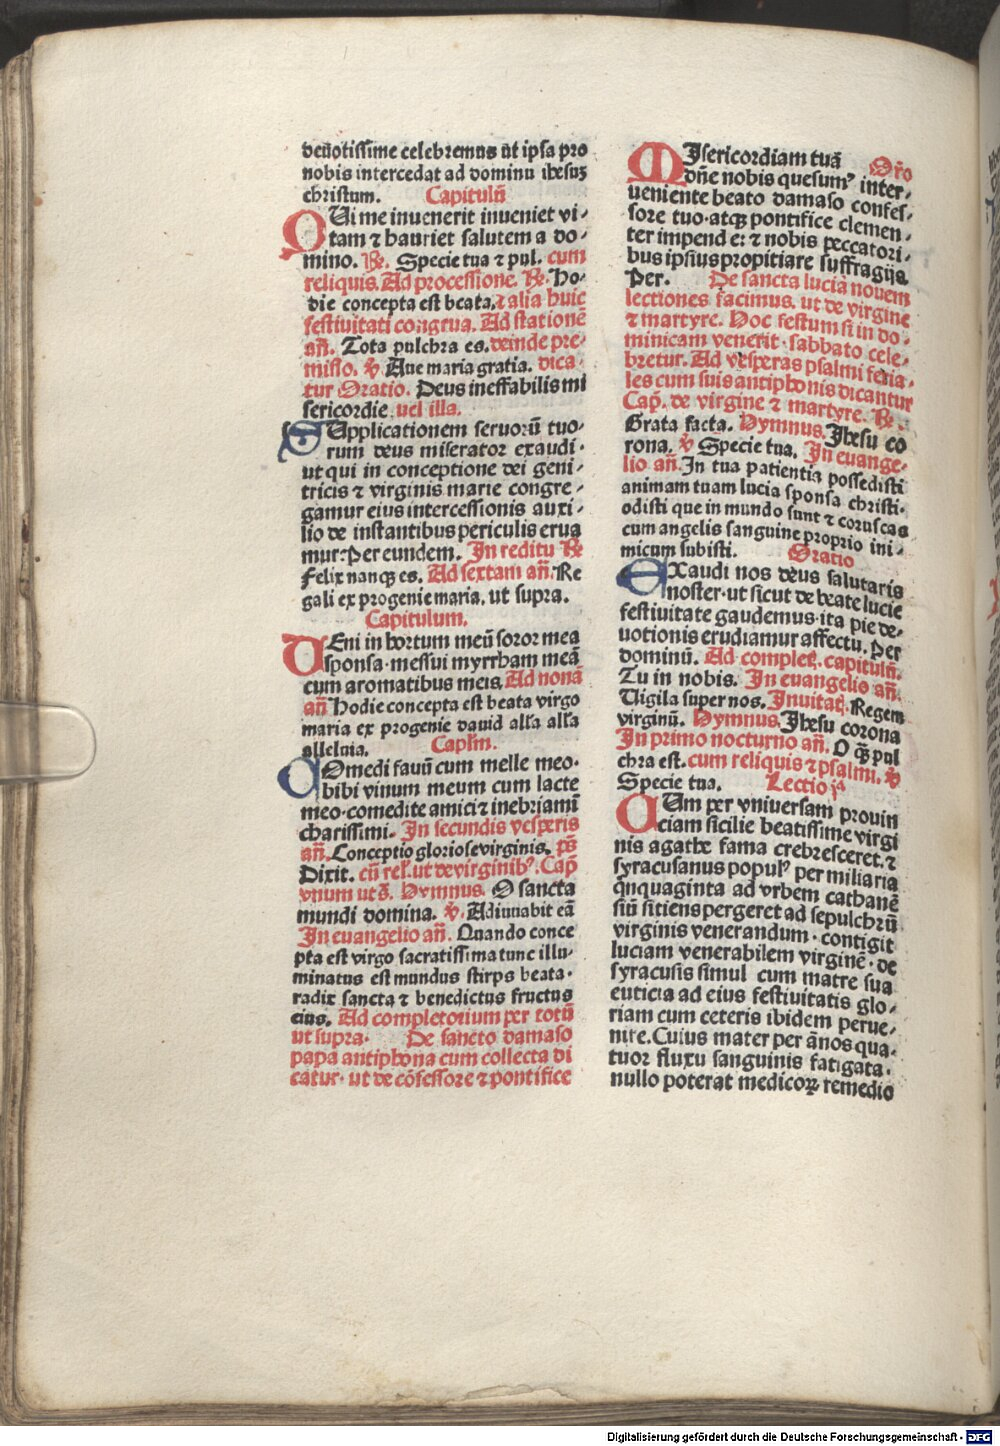 deuotissime celebremus ut ipsa pro
nobis intercedat ad dominū ihesuʒ
christum. Capitulū
QUi me inuenerit inueniet vi-
tam ⁊ hauriet salutem a do-
mino. ℟. Specie tua ⁊ pul. cum
reliquis. Ad processione. ℟. Ho-
die concepta est beata. ⁊ alia huic
festiuitati congrua. Ad stationē
añ. Tota pulchra es. deinde pre-
misso. ℣ Aue maria gratia. dica-
tur Oratio. Deus ineffabilis mi
sericordie. uel illa.
SUpplicationem seruorū tuo-
rum deus miserator exaudi.
ut qui in conceptione dei geni-
tricis ⁊ virginis marie congre-
gamur eius intercessionis auxi-
lio de instantibus periculis erua
mur: Per eundem. In reditu ℟
Felix nanqʒ es. Ad sextam añ. Re
gali ex progenie maria. ut supra.
Capitulum.
UEni in hortum meū soror mea
sponsa. messui myrrham meā
cum aromatibus meis. Ad nonā
añ Hodie concepta est beata virgo
maria ex progenie dauid alľa alľa
alleluia. Caplm̄.
COmedi fauū cum melle meo.
bibi vinum meum cum lacte
meo. comedite amici ⁊ inebriamī
charissimi. In secundis vesperis
añ. Conceptio gloriose virginis. ps̄
Dixit. cū rel. ut de virginib⁹. Cap̄
vnum ut s̄. Hymnus. O sancta
mundi domina. ℣. Adiuuabit eā
In euangelio añ. Quando conce
pta est virgo sacratissima tunc illu-
minatus est mundus stirps beata.
radix sancta ⁊ benedictus fructus
eius. Ad completorium per totū
ut supra. De sancto damaso
papa antiphona cum collecta di
catur. ut de cōfessore ⁊ pontifice
MIsericordiam tuā Or̄o
dn̄e nobis quesum⁹ inter-
ueniente beato damaso confes-
sore tuo. atqʒ pontifice clemen-
ter impende: ⁊ nobis peccatori-
bus ipsius propitiare suffragijs.
Per. De sancta lucia nouem
lectiones facimus. ut de virgine
⁊ martyre. Hoc festum si in do-
minicam venerit. sabbato cele-
bretur. Ad vesperas psalmi feria-
les cum suis antiphonis dicantur
Cap̄. de virgine ⁊ martyre. ℟.
Grata facta. Hymnus. Ihesu co
rona. ℣ Specie tua. In euange-
lio añ. In tua patientia possedisti
animam tuam lucia sponsa christi.
odisti que in mundo sunt ⁊ coruscas
cum angelis sanguine proprio ini-
micum subisti. Oratio
EXaudi nos deus salutaris
noster. ut sicut de beate lucie
festiuitate gaudemus. ita pie de-
uotionis erudiamur affectu. Per
dominū. Ad complet. capitulū.
Tu in nobis. In euangelio añ.
Uigila super nos. Inuitat. Regem
virginū. Hymnus. Ihesu corona
In primo nocturno añ. O qʒ pul
chra est. cum reliquis ⁊ psalmi. ℣
Specie tua. Lectio jª
CUm per vniuersam prouin
ciam sicilie beatissime virgi
nis agathe fama crebresceret. ⁊
syracusanus popul⁹ per miliaria
qͥnquaginta ad vrbem cathanē
siū sitiens pergeret ad sepulchrū
virginis venerandum. contigit
luciam venerabilem virginē. de
syracusis simul cum matre sua
euticia ad eius festiuitatis glo-
riam cum ceteris ibidem perue-
nire. Cuius mater per ānos qua-
tuor fluxu sanguinis fatigata.
nullo poterat medicoꝝ remedio
Digitalisierung gefördert durch die Deutsche Forschungsgemeinschaft - DFG